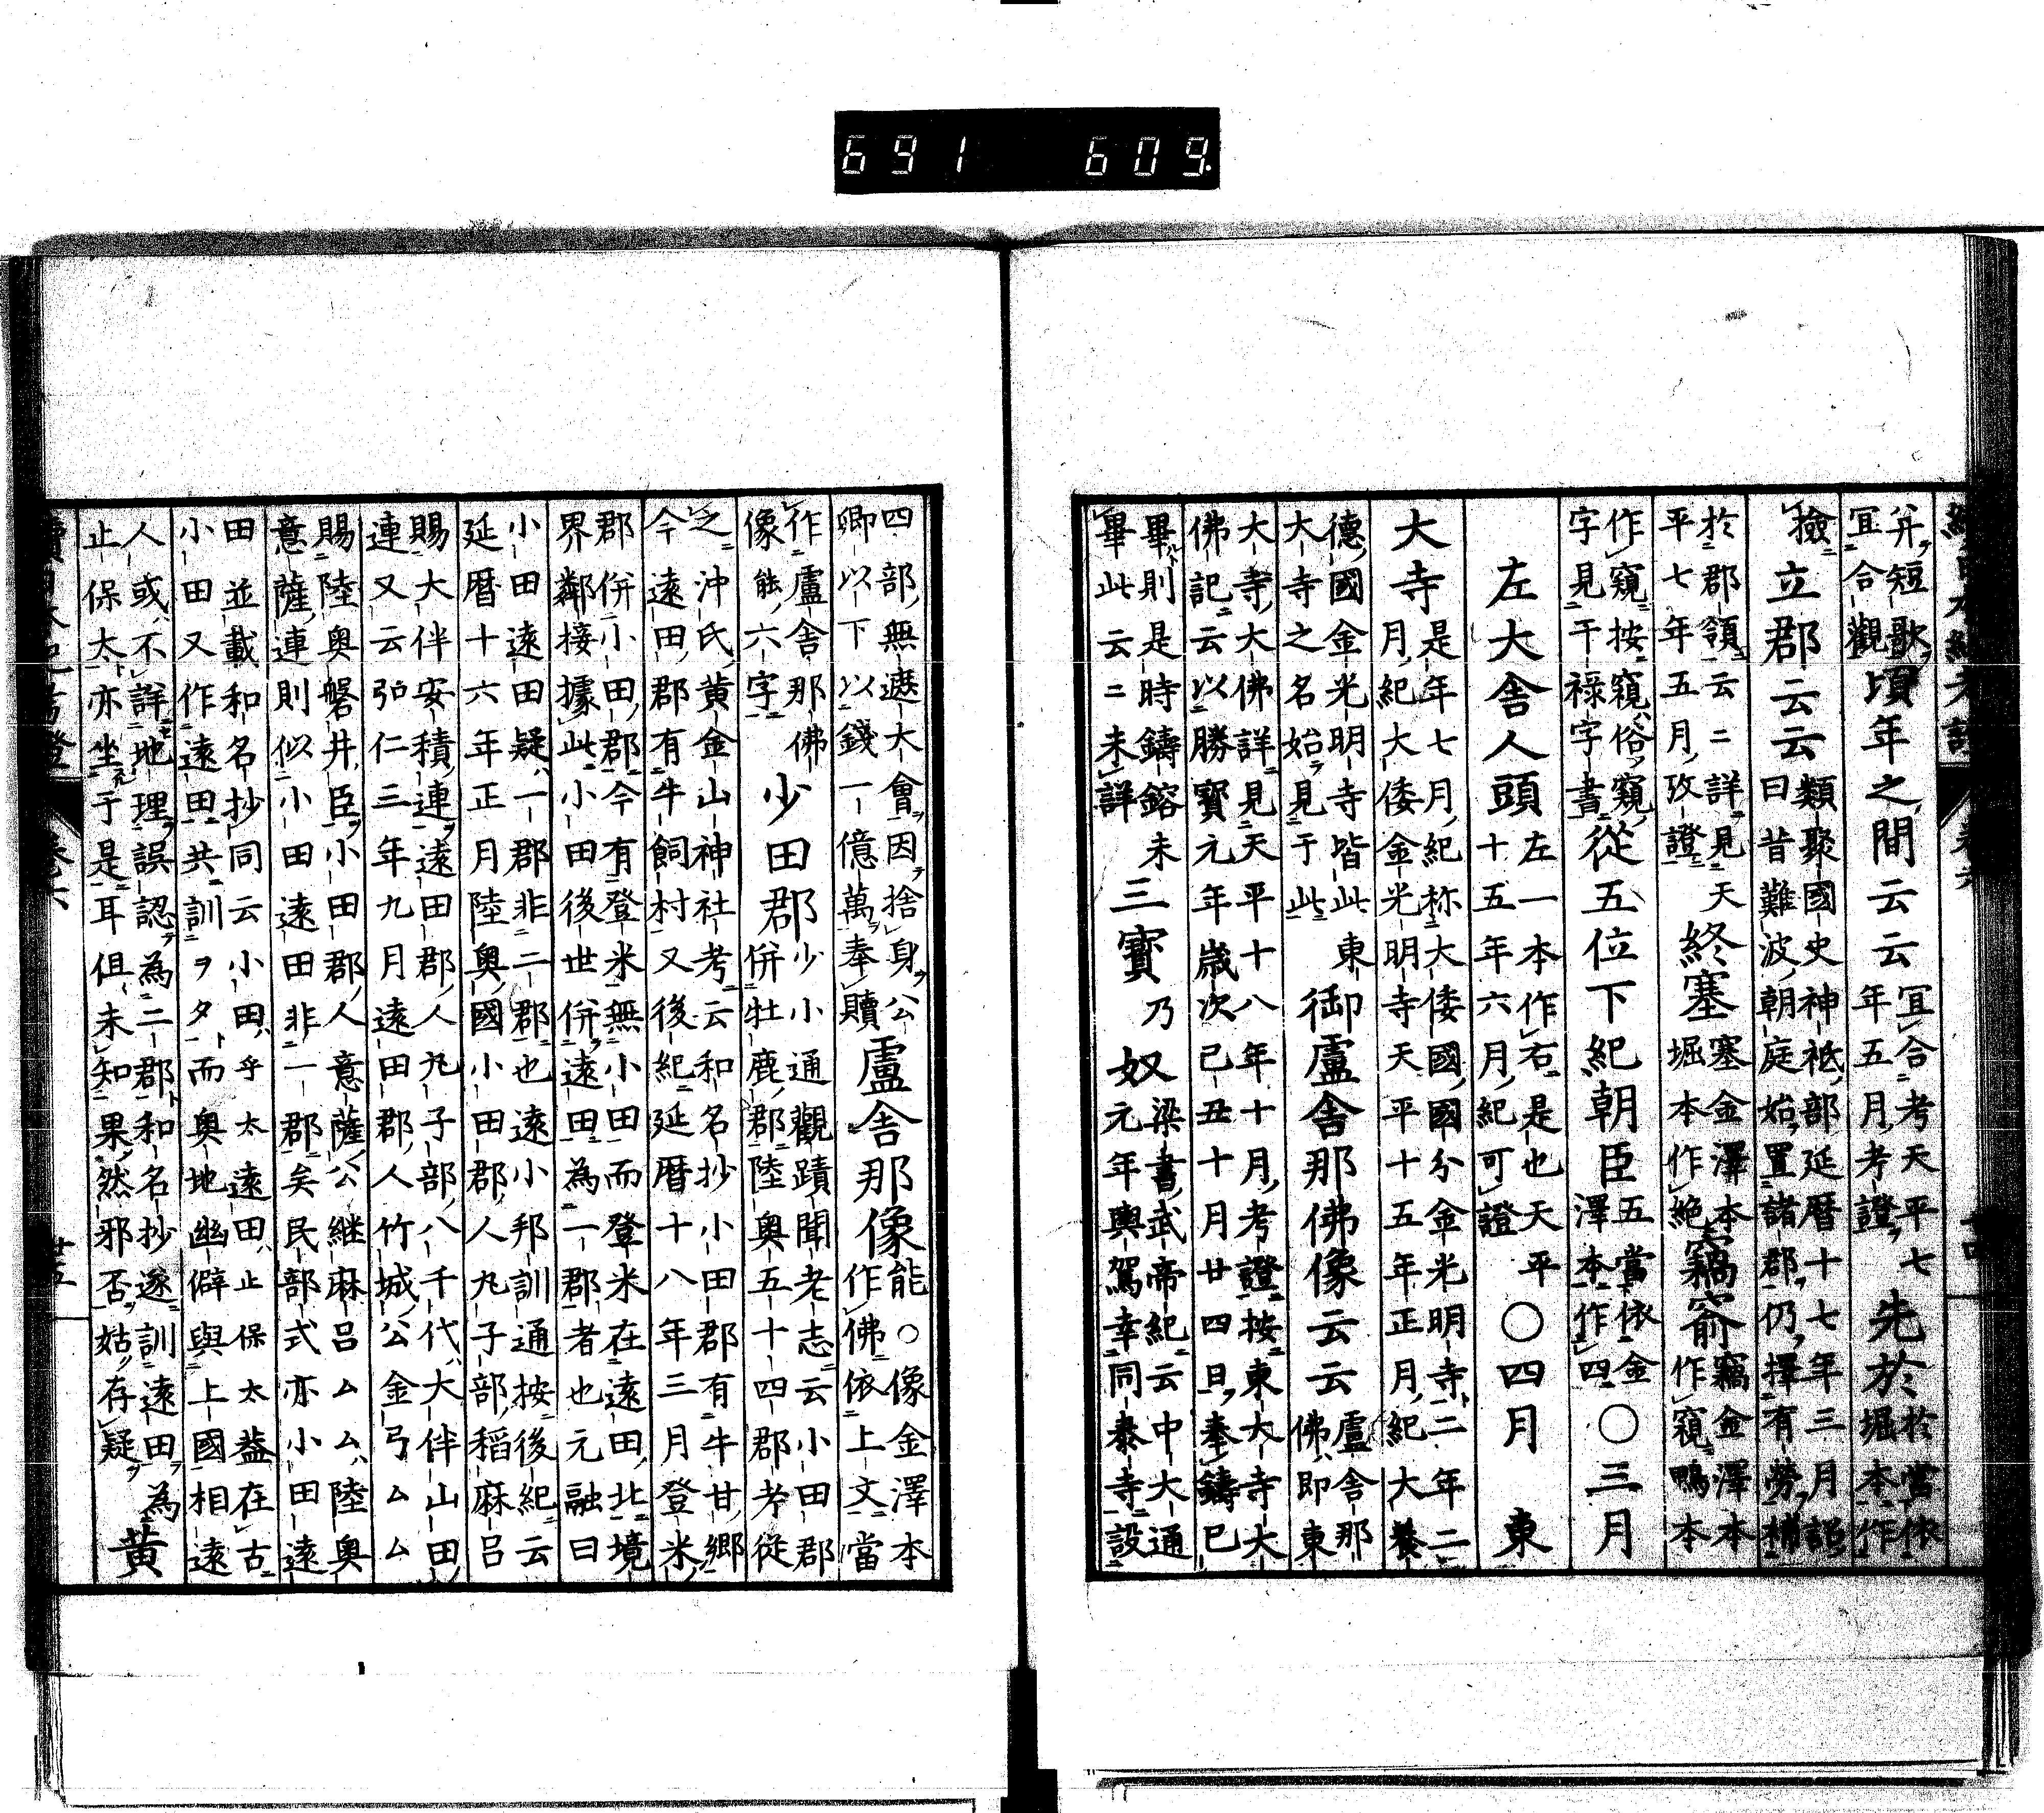 691 609.
續日本紀考證 卷六 廿四
并短歌
宜合觀 頃年之間云云 宜合考天平七
年五月考證 先於 於當依
堀本作
撿 立郡云云 類聚國史神祇部延暦十七年三月詔
曰昔難波朝庭始置諸郡仍擇有勞補
於郡領云二詳見天
平七年五月攷證 終塞 塞金澤本
堀本作絶 竊窬 竊金澤本
作窺鴨本
作窺按窺俗窺
字見干祿字書 從五位下紀朝臣 五當依金
澤本作四 〇三月
左大舍人頭 左一本作右是也天平
十五年六月紀可證 〇四月 東
大寺 是年七月紀称大倭國國分金光明寺二年二
月紀大倭金光明寺天平十五年正月紀大養
德國金光明寺皆此東
大寺之名始見于此 御盧舍那佛像云云 盧舍那
佛即東
大寺大佛詳見天平十八年十月考證按東大寺大
佛記云以勝寶元年歳次己丑十月廿四日奉鑄已
畢則是時鑄鎔未
畢此云二未詳 三寶 乃 奴 梁書武帝紀云中大通
元年輿駕幸同泰寺設
四部無遮大會因捨身公
卿以下以錢一億萬奉贖 盧舍那像能 〇像金澤本
作佛依上文當
作盧舍那佛
像能六字 少田郡 少小通觀蹟聞老志云小田郡
併牡鹿郡陸奥五十四郡考從
之沖氏黄金山神社考云和名抄小田郡有牛甘郷
今遠田郡有牛飼村又後紀延暦十八年三月登米
郡併小田郡今有登米無小田而登米在遠田北境
界鄰接據此小田後世併遠田為一郡者也元融曰
小田遠田疑一郡非二郡也遠小邦訓通按後紀云
延暦十六年正月陸奥國小田郡人丸子部稻麻呂
賜大伴安積連遠田郡人丸子部八千代大伴山田
連又云弘仁三年九月遠田郡人竹城公金弓ムム
賜陸奥磐井臣小田郡人意薩公継麻呂ムム陸奥
意薩連則似小田遠田非一郡矣民部式亦小田遠
田並載和名抄同云小田乎太遠田止保太葢在古
小田又作遠田共訓ヲタ而奥地幽僻與上國相遠
人或不詳地理誤認為二郡和名抄遂訓遠田為
止保太亦坐于是耳但未知果然邪否姑存疑 黄
續日本紀考證 卷六 廿五